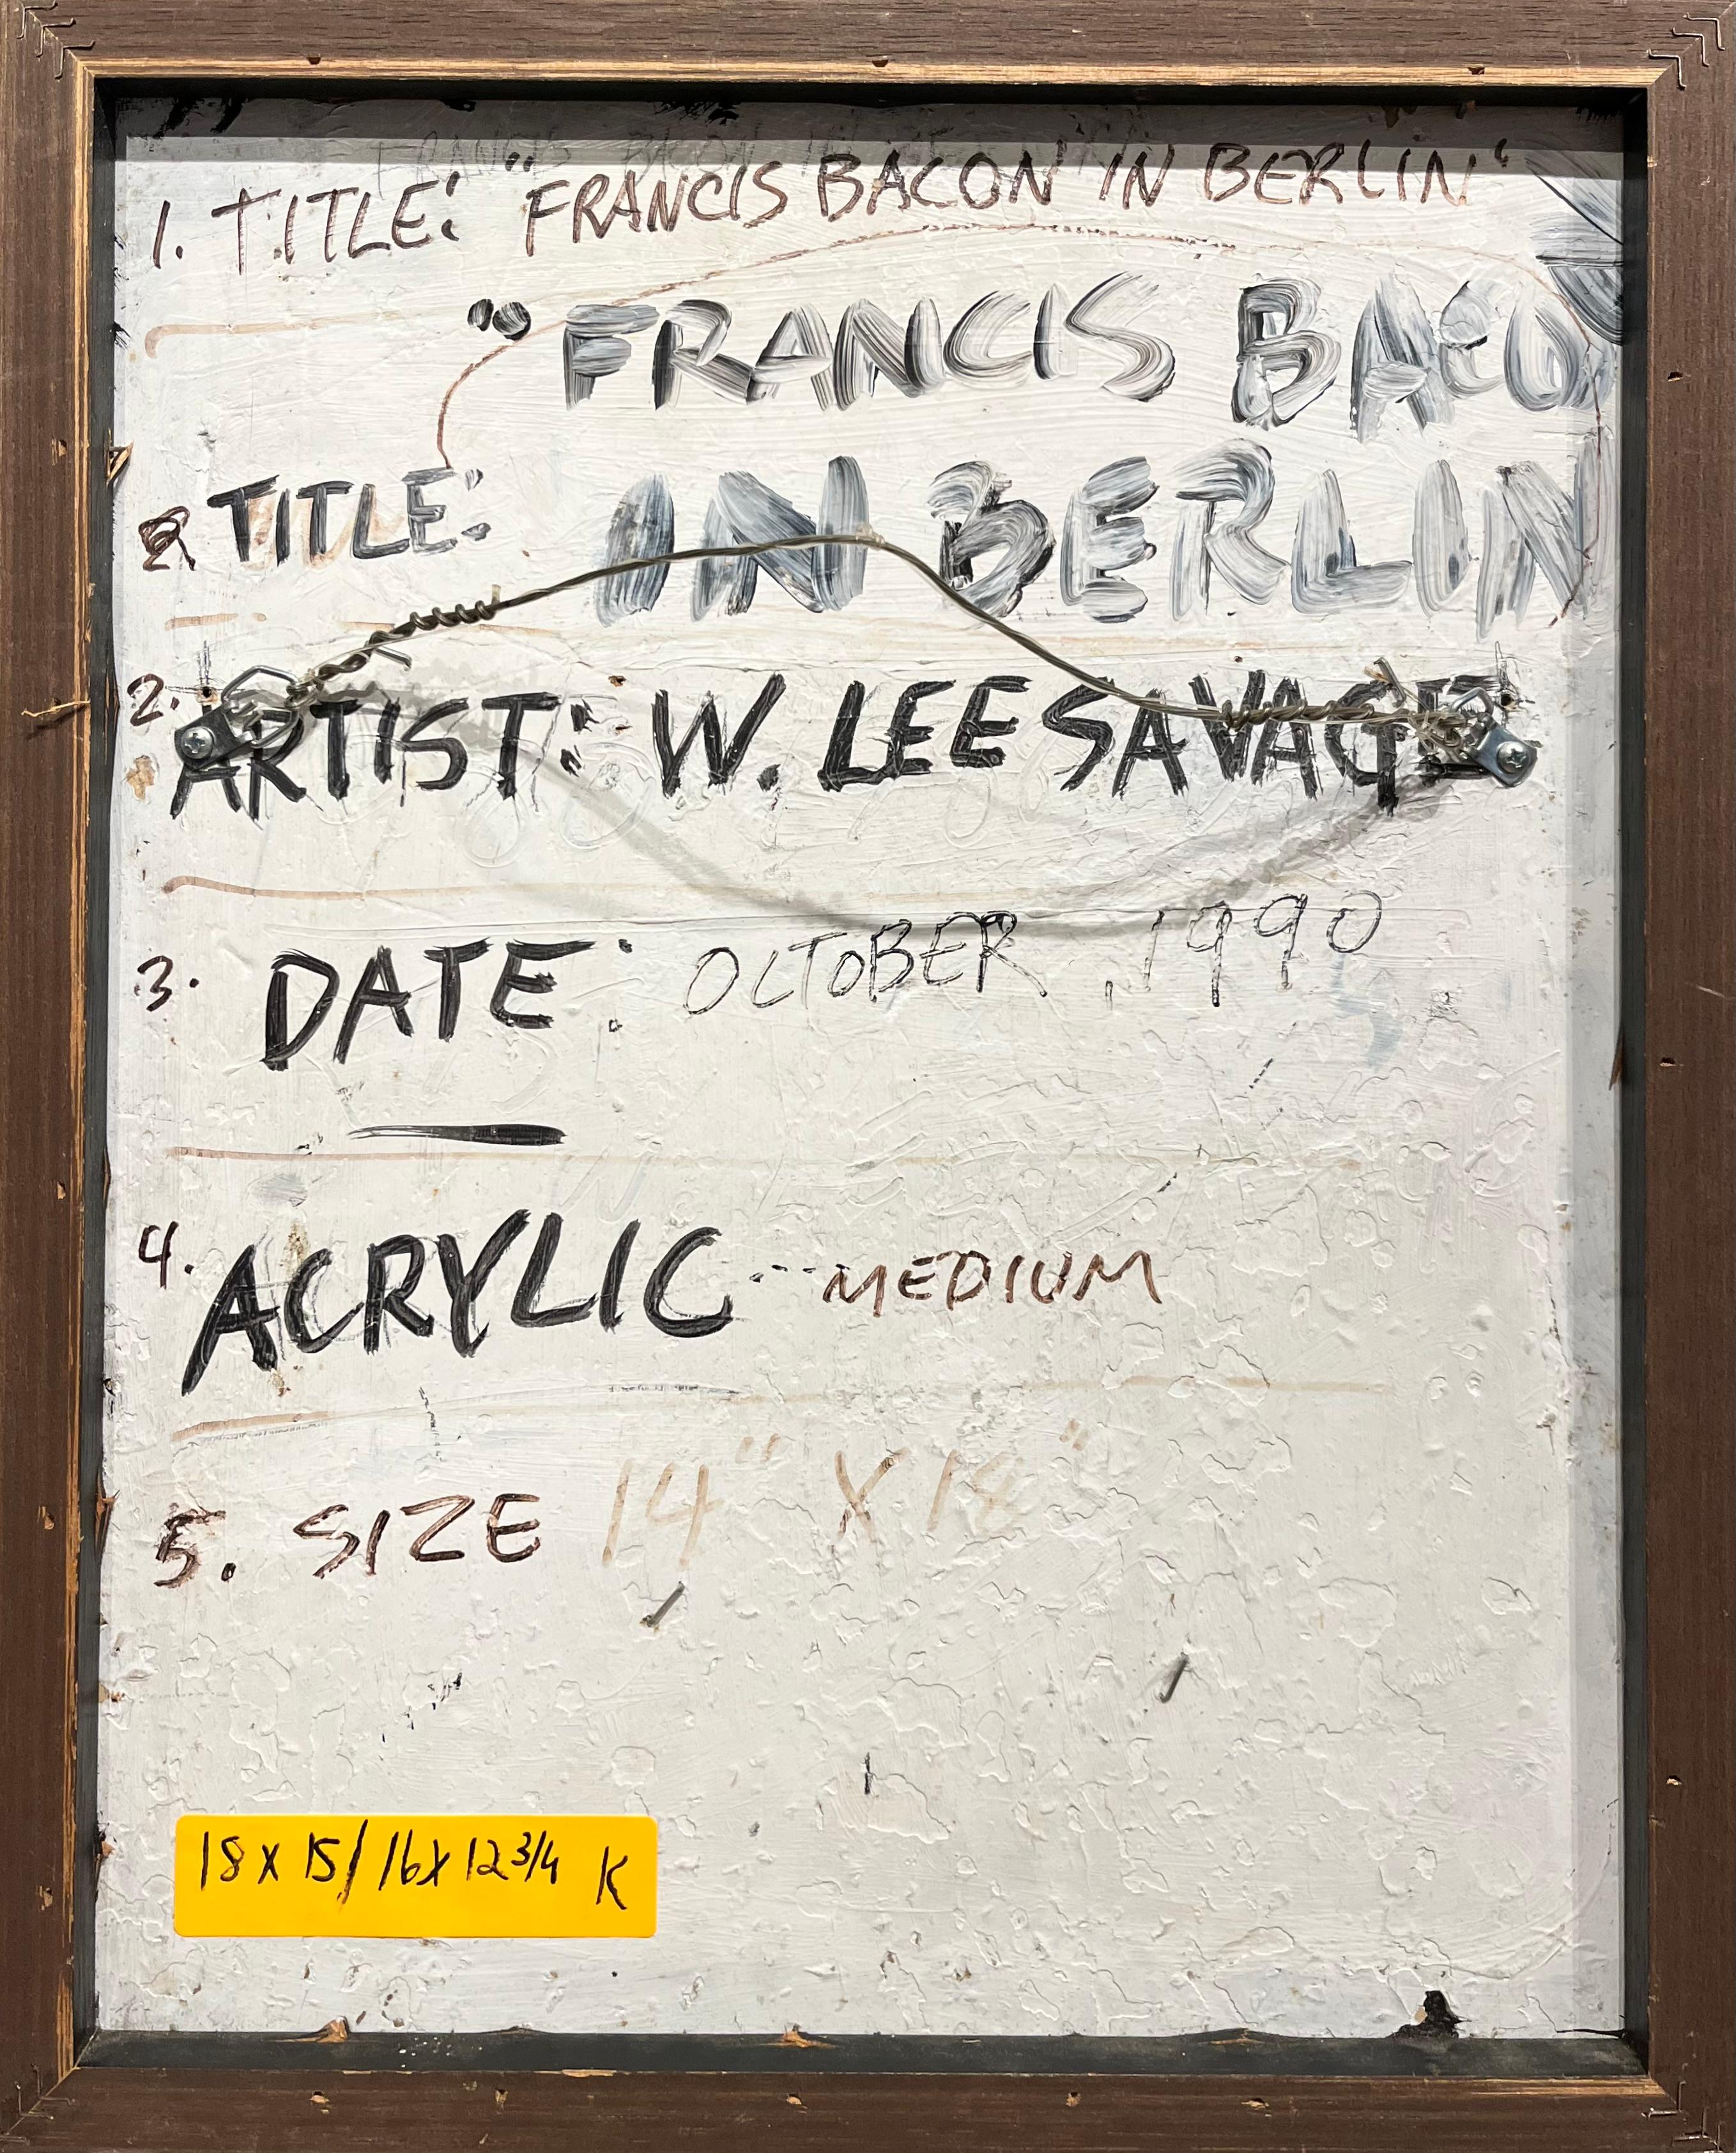 FRANCIS BACON IN BERLIN
1. TITLE: "FRANCIS BACON IN BERLIN"
"FRANCIS BACO
TITLE: IN BERLIN
2. ARTIST: W. LEE SAVAGE
3. DATE: OCTOBER, 1990
4. ACRYLIC --- MEDIUM
5. SIZE 14" X 18"
18 x 15/16 x 12 3/4 K